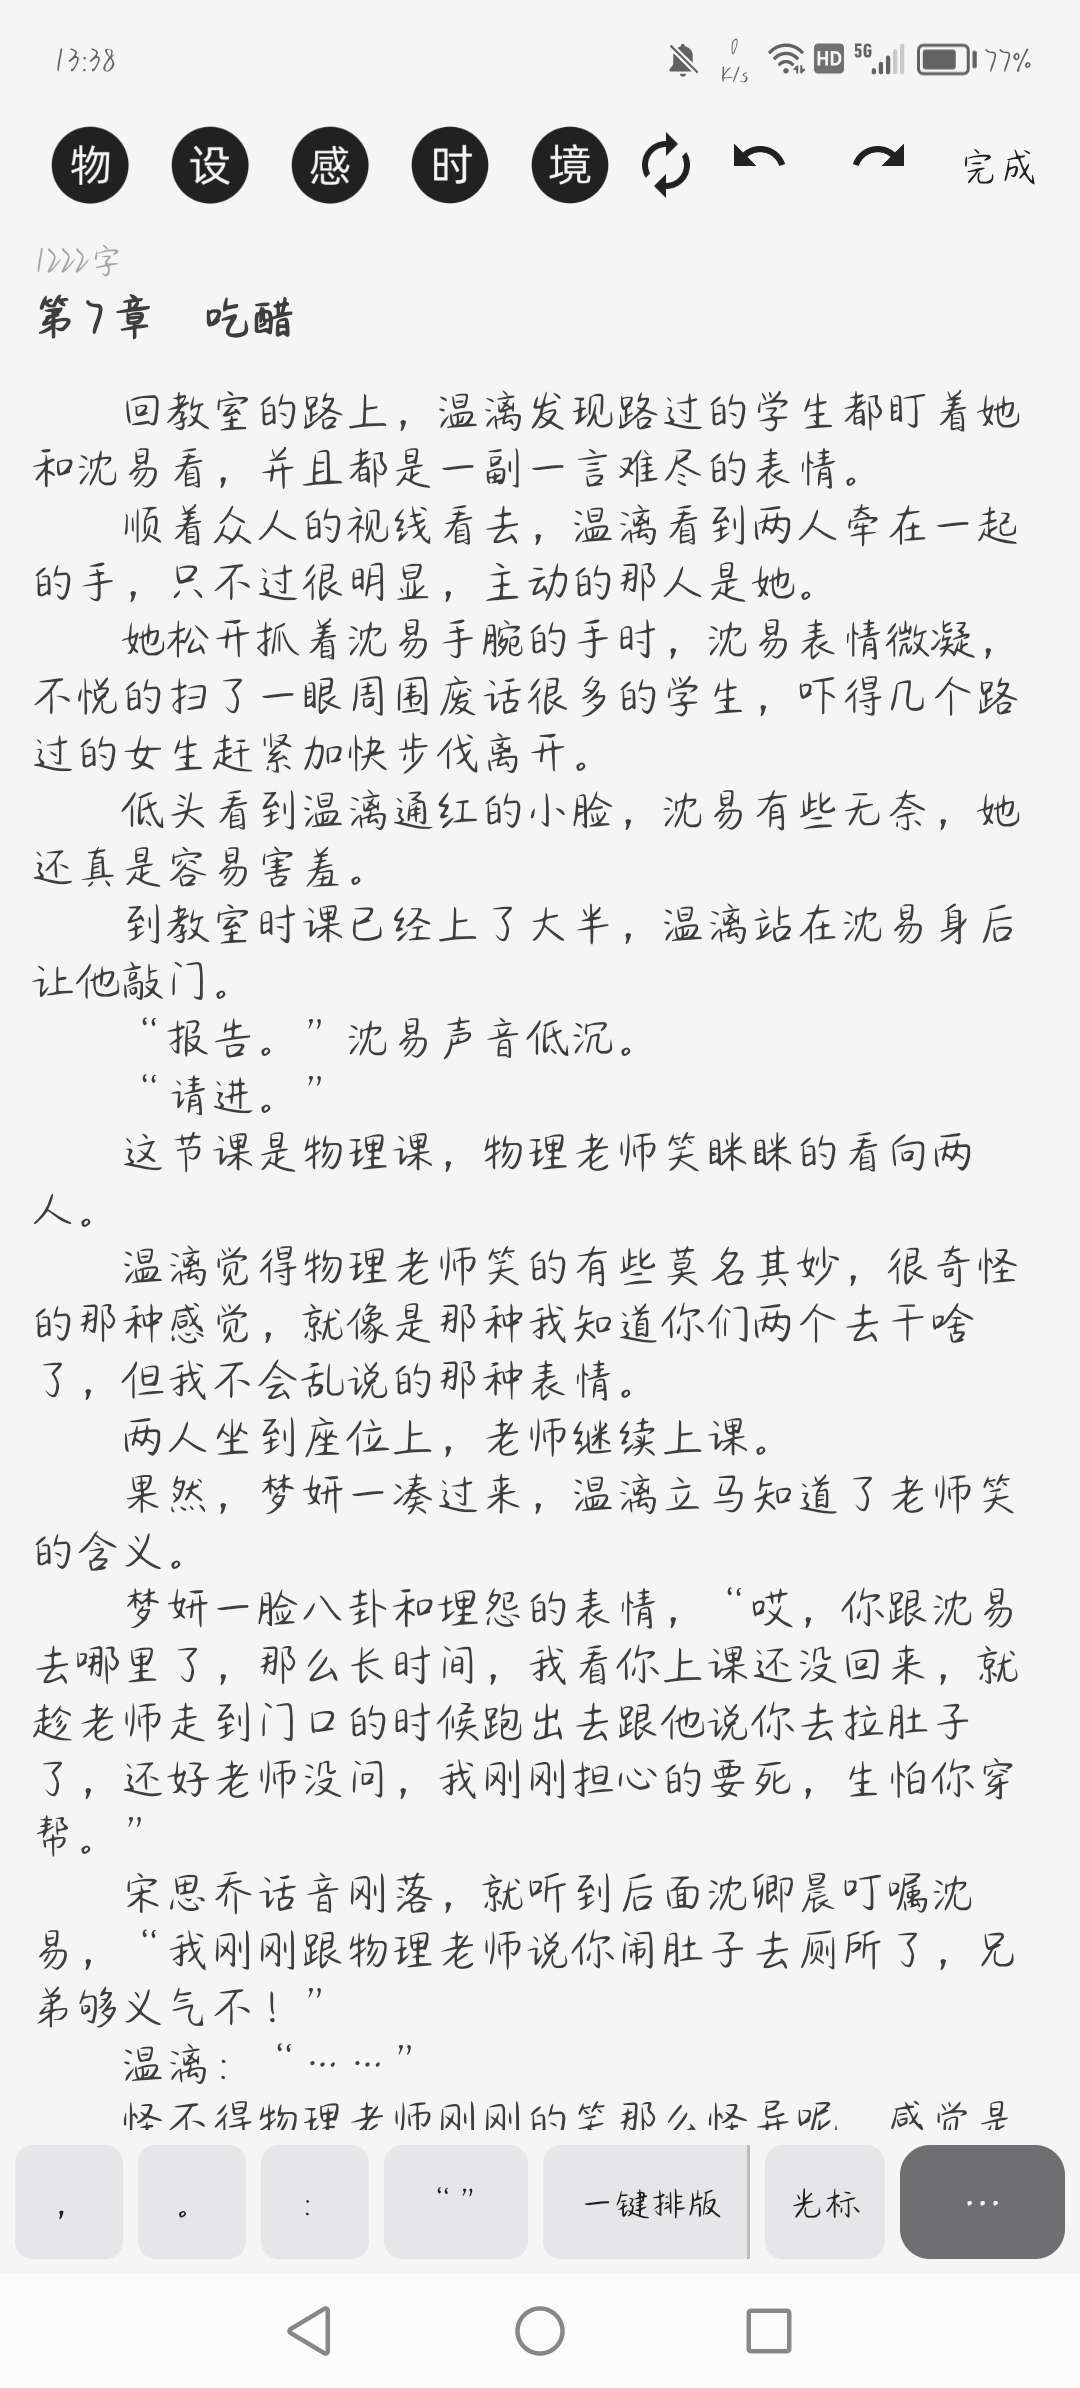 13:38
0 K/s HD 5G 77%
物 设 感 时 境 完成
1222字
第7章 吃醋
回教室的路上，温漓发现路过的学生都盯着她
和沈易看，并且都是一副一言难尽的表情。
顺着众人的视线看去，温漓看到两人牵在一起
的手，只不过很明显，主动的那人是她。
她松开抓着沈易手腕的手时，沈易表情微凝，
不悦的扫了一眼周围废话很多的学生，吓得几个路
过的女生赶紧加快步伐离开。
低头看到温漓通红的小脸，沈易有些无奈，她
还真是容易害羞。
到教室时课已经上了大半，温漓站在沈易身后
让他敲门。
“报告。”沈易声音低沉。
“请进。”
这节课是物理课，物理老师笑眯眯的看向两
人。
温漓觉得物理老师笑的有些莫名其妙，很奇怪
的那种感觉，就像是那种我知道你们两个去干啥
了，但我不会乱说的那种表情。
两人坐到座位上，老师继续上课。
果然，梦妍一凑过来，温漓立马知道了老师笑
的含义。
梦妍一脸八卦和埋怨的表情，“哎，你跟沈易
去哪里了，那么长时间，我看你上课还没回来，就
趁老师走到门口的时候跑出去跟他说你去拉肚子
了，还好老师没问，我刚刚担心的要死，生怕你穿
帮。”
宋思乔话音刚落，就听到后面沈卿晨叮嘱沈
易，“我刚刚跟物理老师说你闹肚子去厕所了，兄
弟够义气不！”
温漓：“……”
怪不得物理老师刚刚的笑那么怪异呢，感觉是
， 。 : “” 一键排版 光标 …